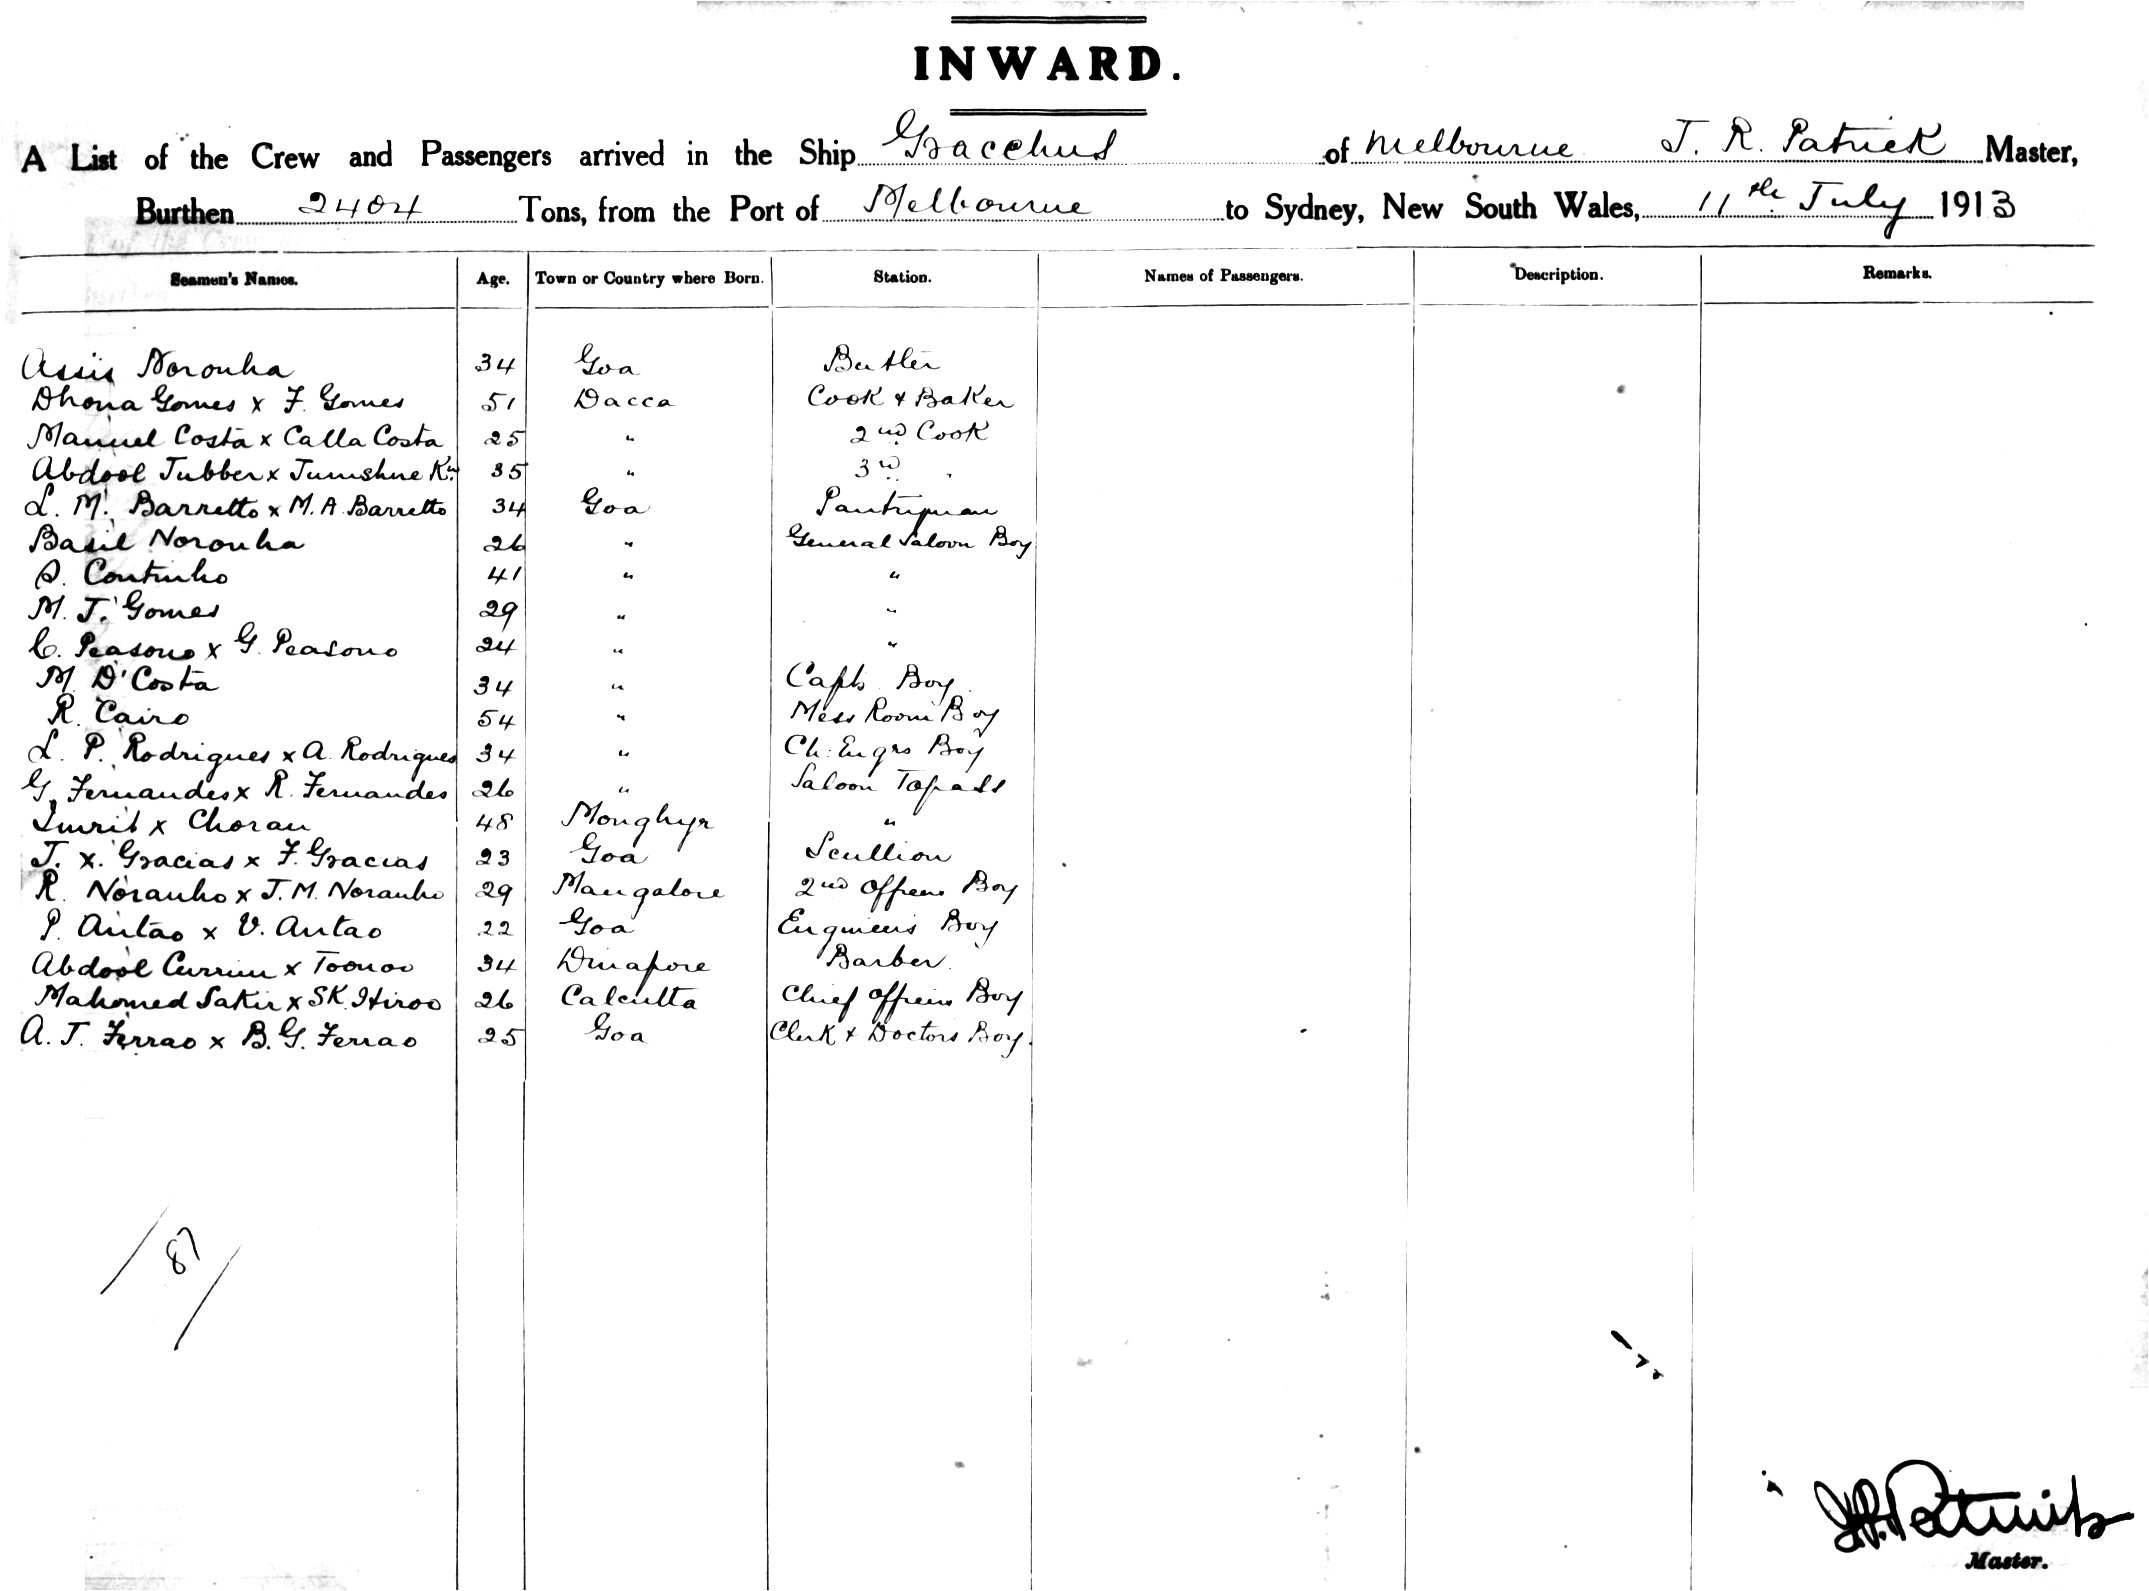 INWARD.
A List of the Crew and Passengers arrived in the Ship Gracchus of Melbourne J. R. Patrick Master,
Burthen 2404 Tons, from the Port of Melbourne to Sydney, New South Wales, 11th July 1913
Seamen's Names. Age. Town or Country where Born. Station. Names of Passengers. Description. Remarks.
Assis Noronha 34 Goa Butler
Dhona Gomes x F. Gomes 51 Dacca Cook & Baker
Manuel Costa x Calla Costa 25 " 2nd Cook
Abdool Jubber x 35 " 3rd "
L. M. Barretto x M. A. Barretto 34 Goa Pantryman
Basil Noronha 26 " General Saloon Boy
S. Coutinho 41 " "
M. J. Gomes 29 " "
C. Peasono x G. Peasono 24 " "
M. D'Costa 34 " Capts Boy
R. Cairo 54 " Mess Room Boy
L. P. Rodrigues x A. Rodrigues 34 " Ch. Engrs Boy
G. Fernandes x R. Fernandes 26 " Saloon Topass
Imrit x Choran 48 Monghyr "
J. X. Gracias x F. Gracias 23 Goa Scullion
R. Noranho x J. M. Noranho 29 Mangalore 2nd Officers Boy
P. Antao x V. Antao 22 Goa Engineers Boy
Abdool Currim x Toonoo 34 Dinapore Barber
Mahomed Sakir x SK. Hiroo 26 Calcutta Chief Officers Boy
A. J. Ferrao x B. G. Ferrao 25 Goa Clerk & Doctors Boy.
/87/
J.R. Patrick
Master.